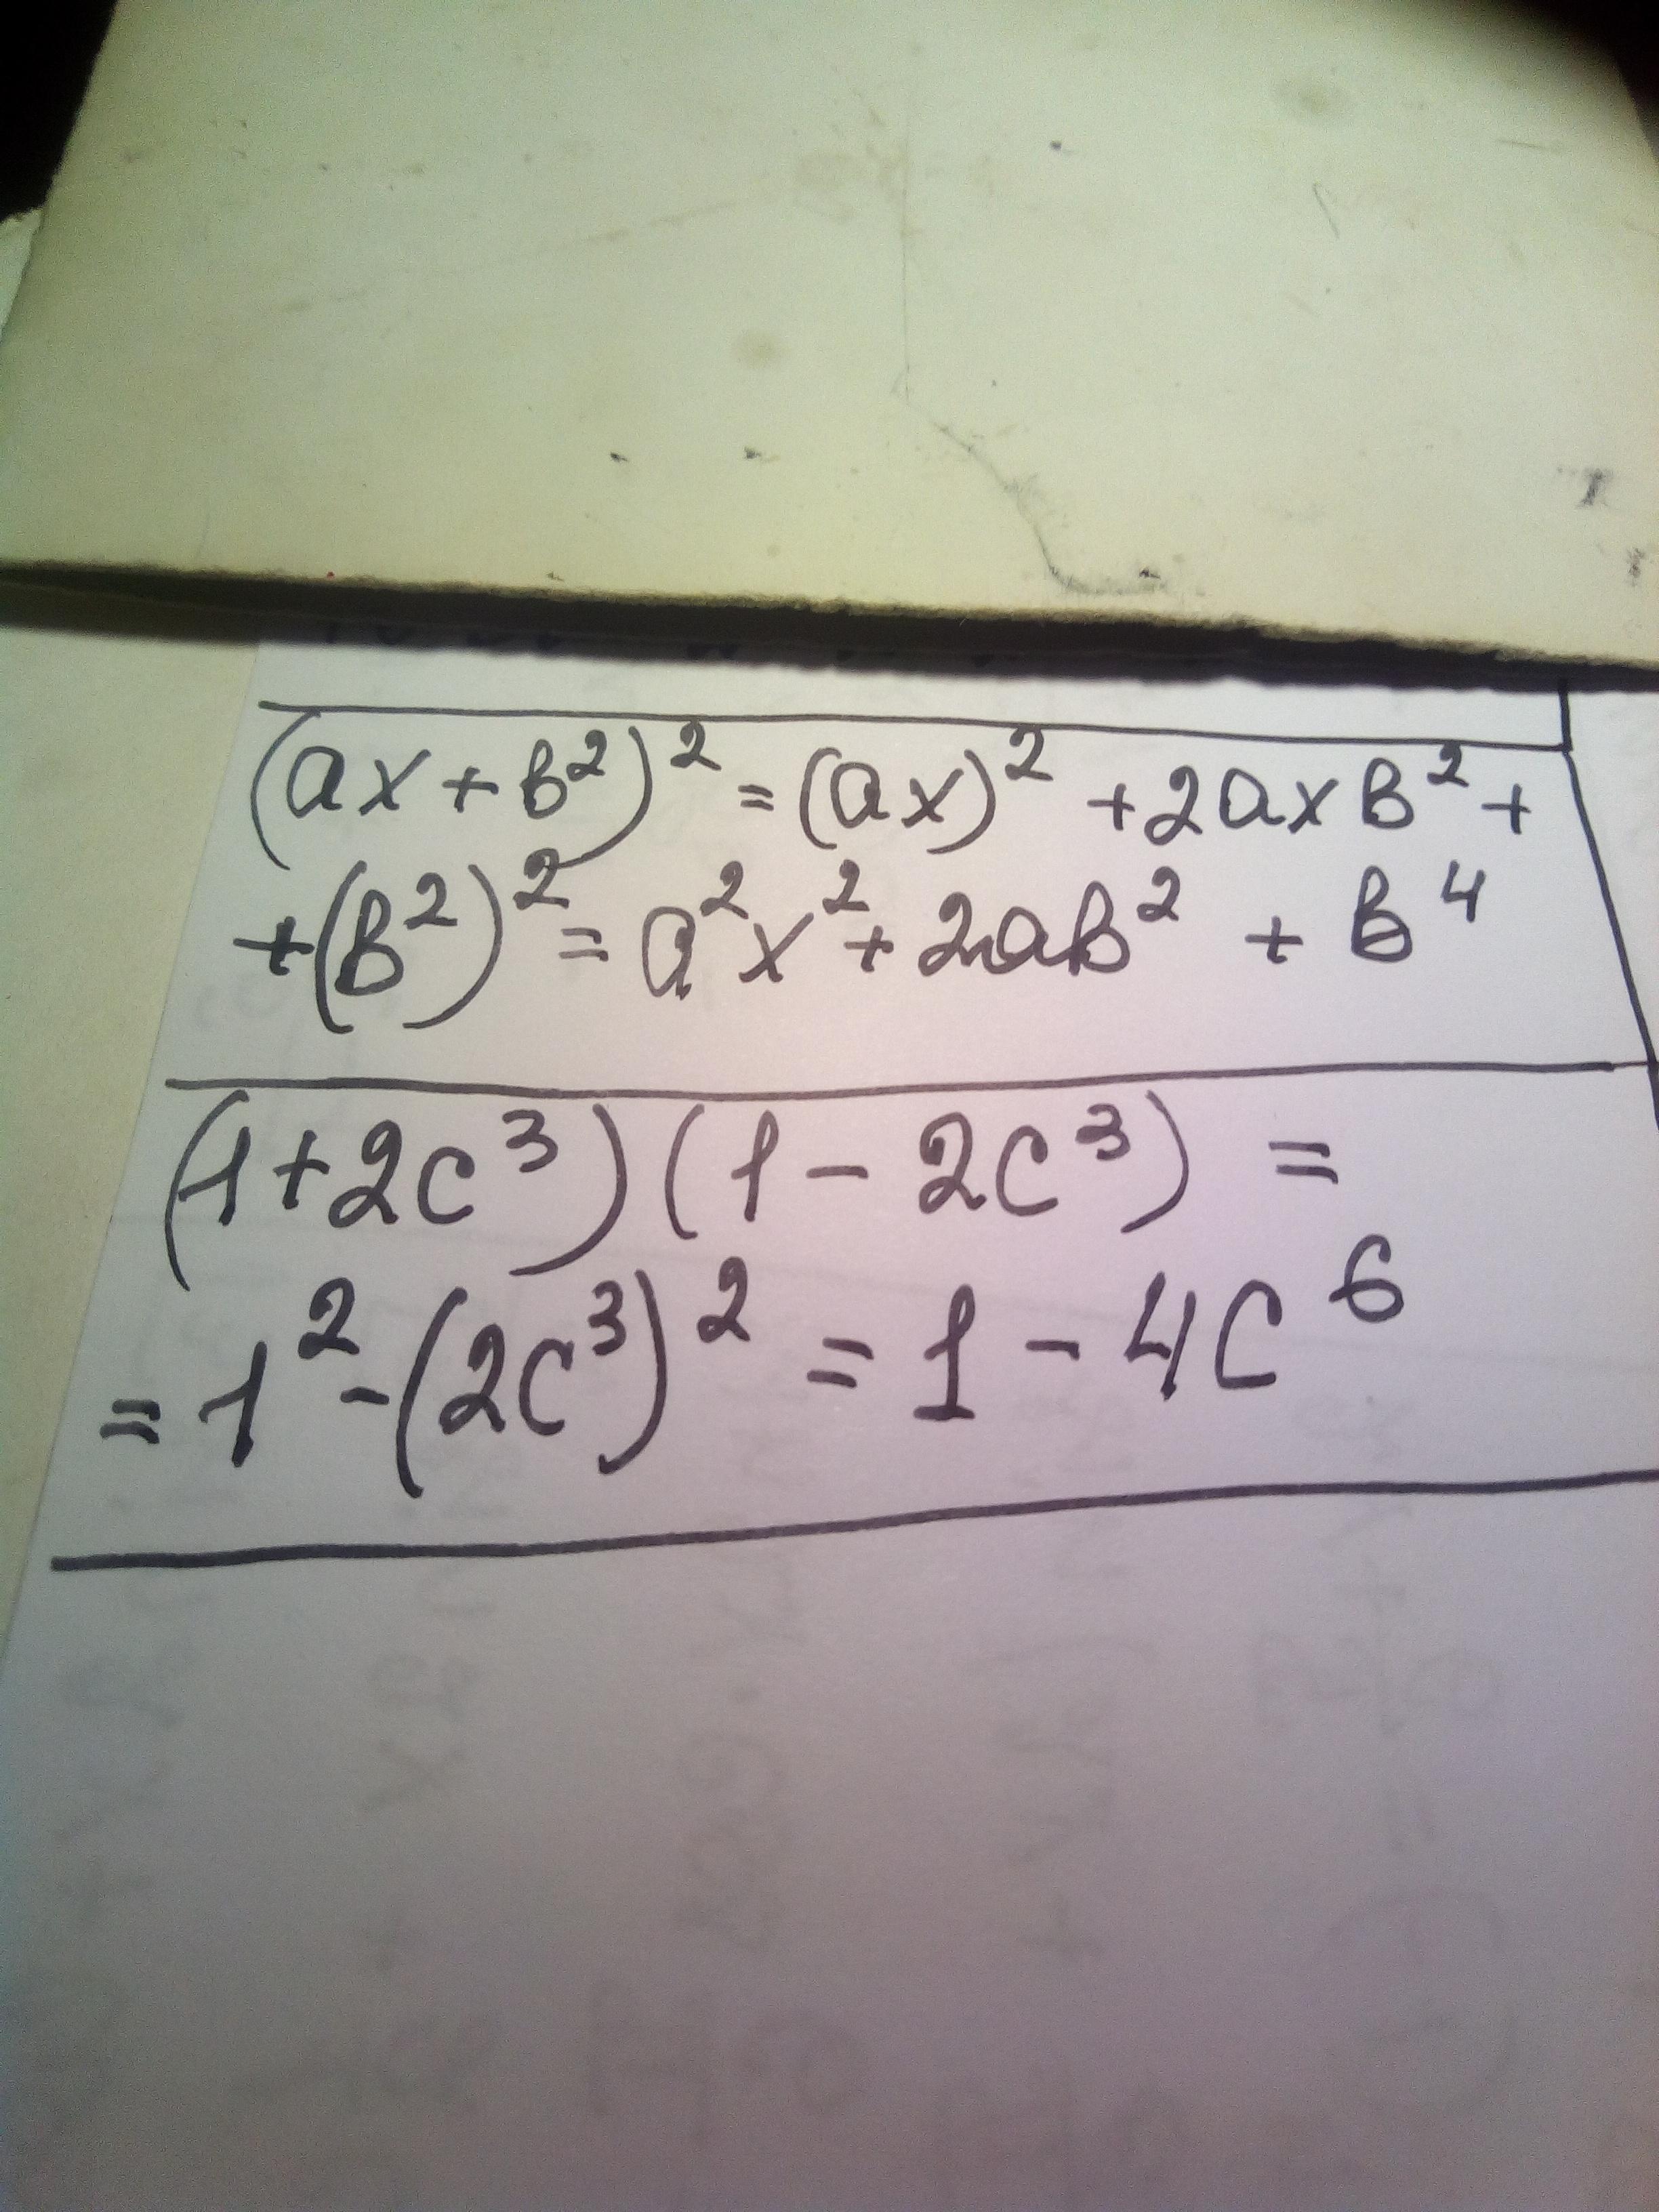 (ax+b²)² = (ax)² + 2axb² +
+(b²)² = a²x² + 2ab² + b⁴
(1+2c³)(1-2c³) =
= 1² - (2c³)² = 1 - 4c⁶